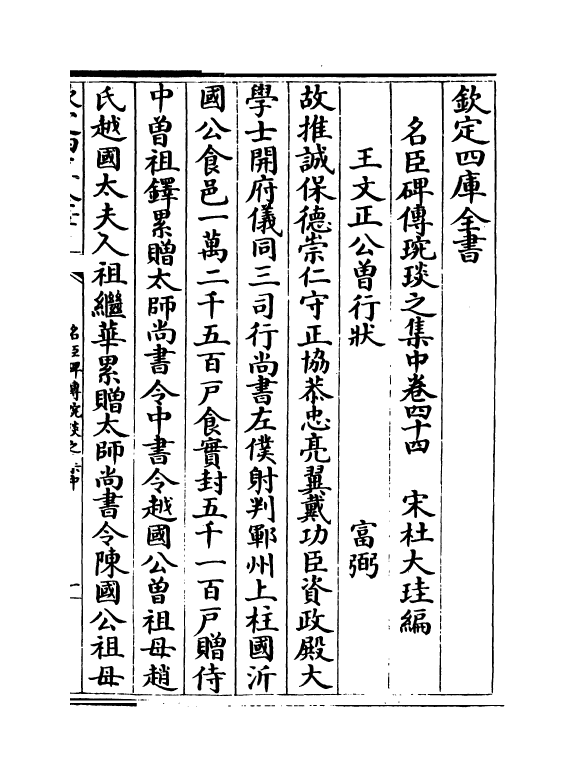 欽定四庫全書
名臣碑傳琬琰之集中卷四十四 宋杜大珪編
王文正公曾行狀 富弼
故推誠保德崇仁守正協恭忠亮翼戴功臣資政殿大
學士開府儀同三司行尚書左僕射判鄆州上柱國沂
國公食邑一萬二千五百戸食實封五千一百戸贈侍
中曾祖鐸累贈太師尚書令中書令越國公曾祖母趙
氏越國太夫人祖繼華累贈太師尚書令陳國公祖母
名臣碑傳琬琰之集中
一